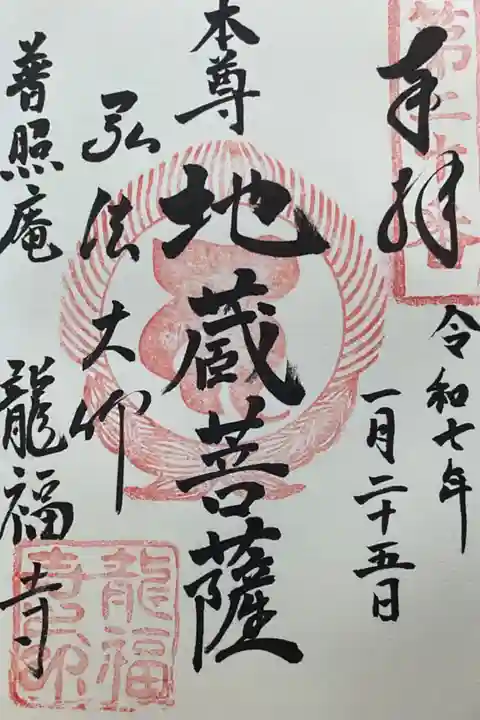 奉拝
令和七年
一月二十五日
本尊
地蔵菩薩
弘法大师
普照庵
龍福寺
龍福
寺印